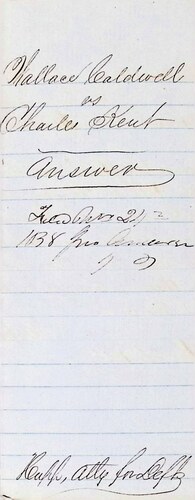 Wallace Caldwell
vs
Charles Kent
Answer
Filed Nov 24
Huff, atty for Deft